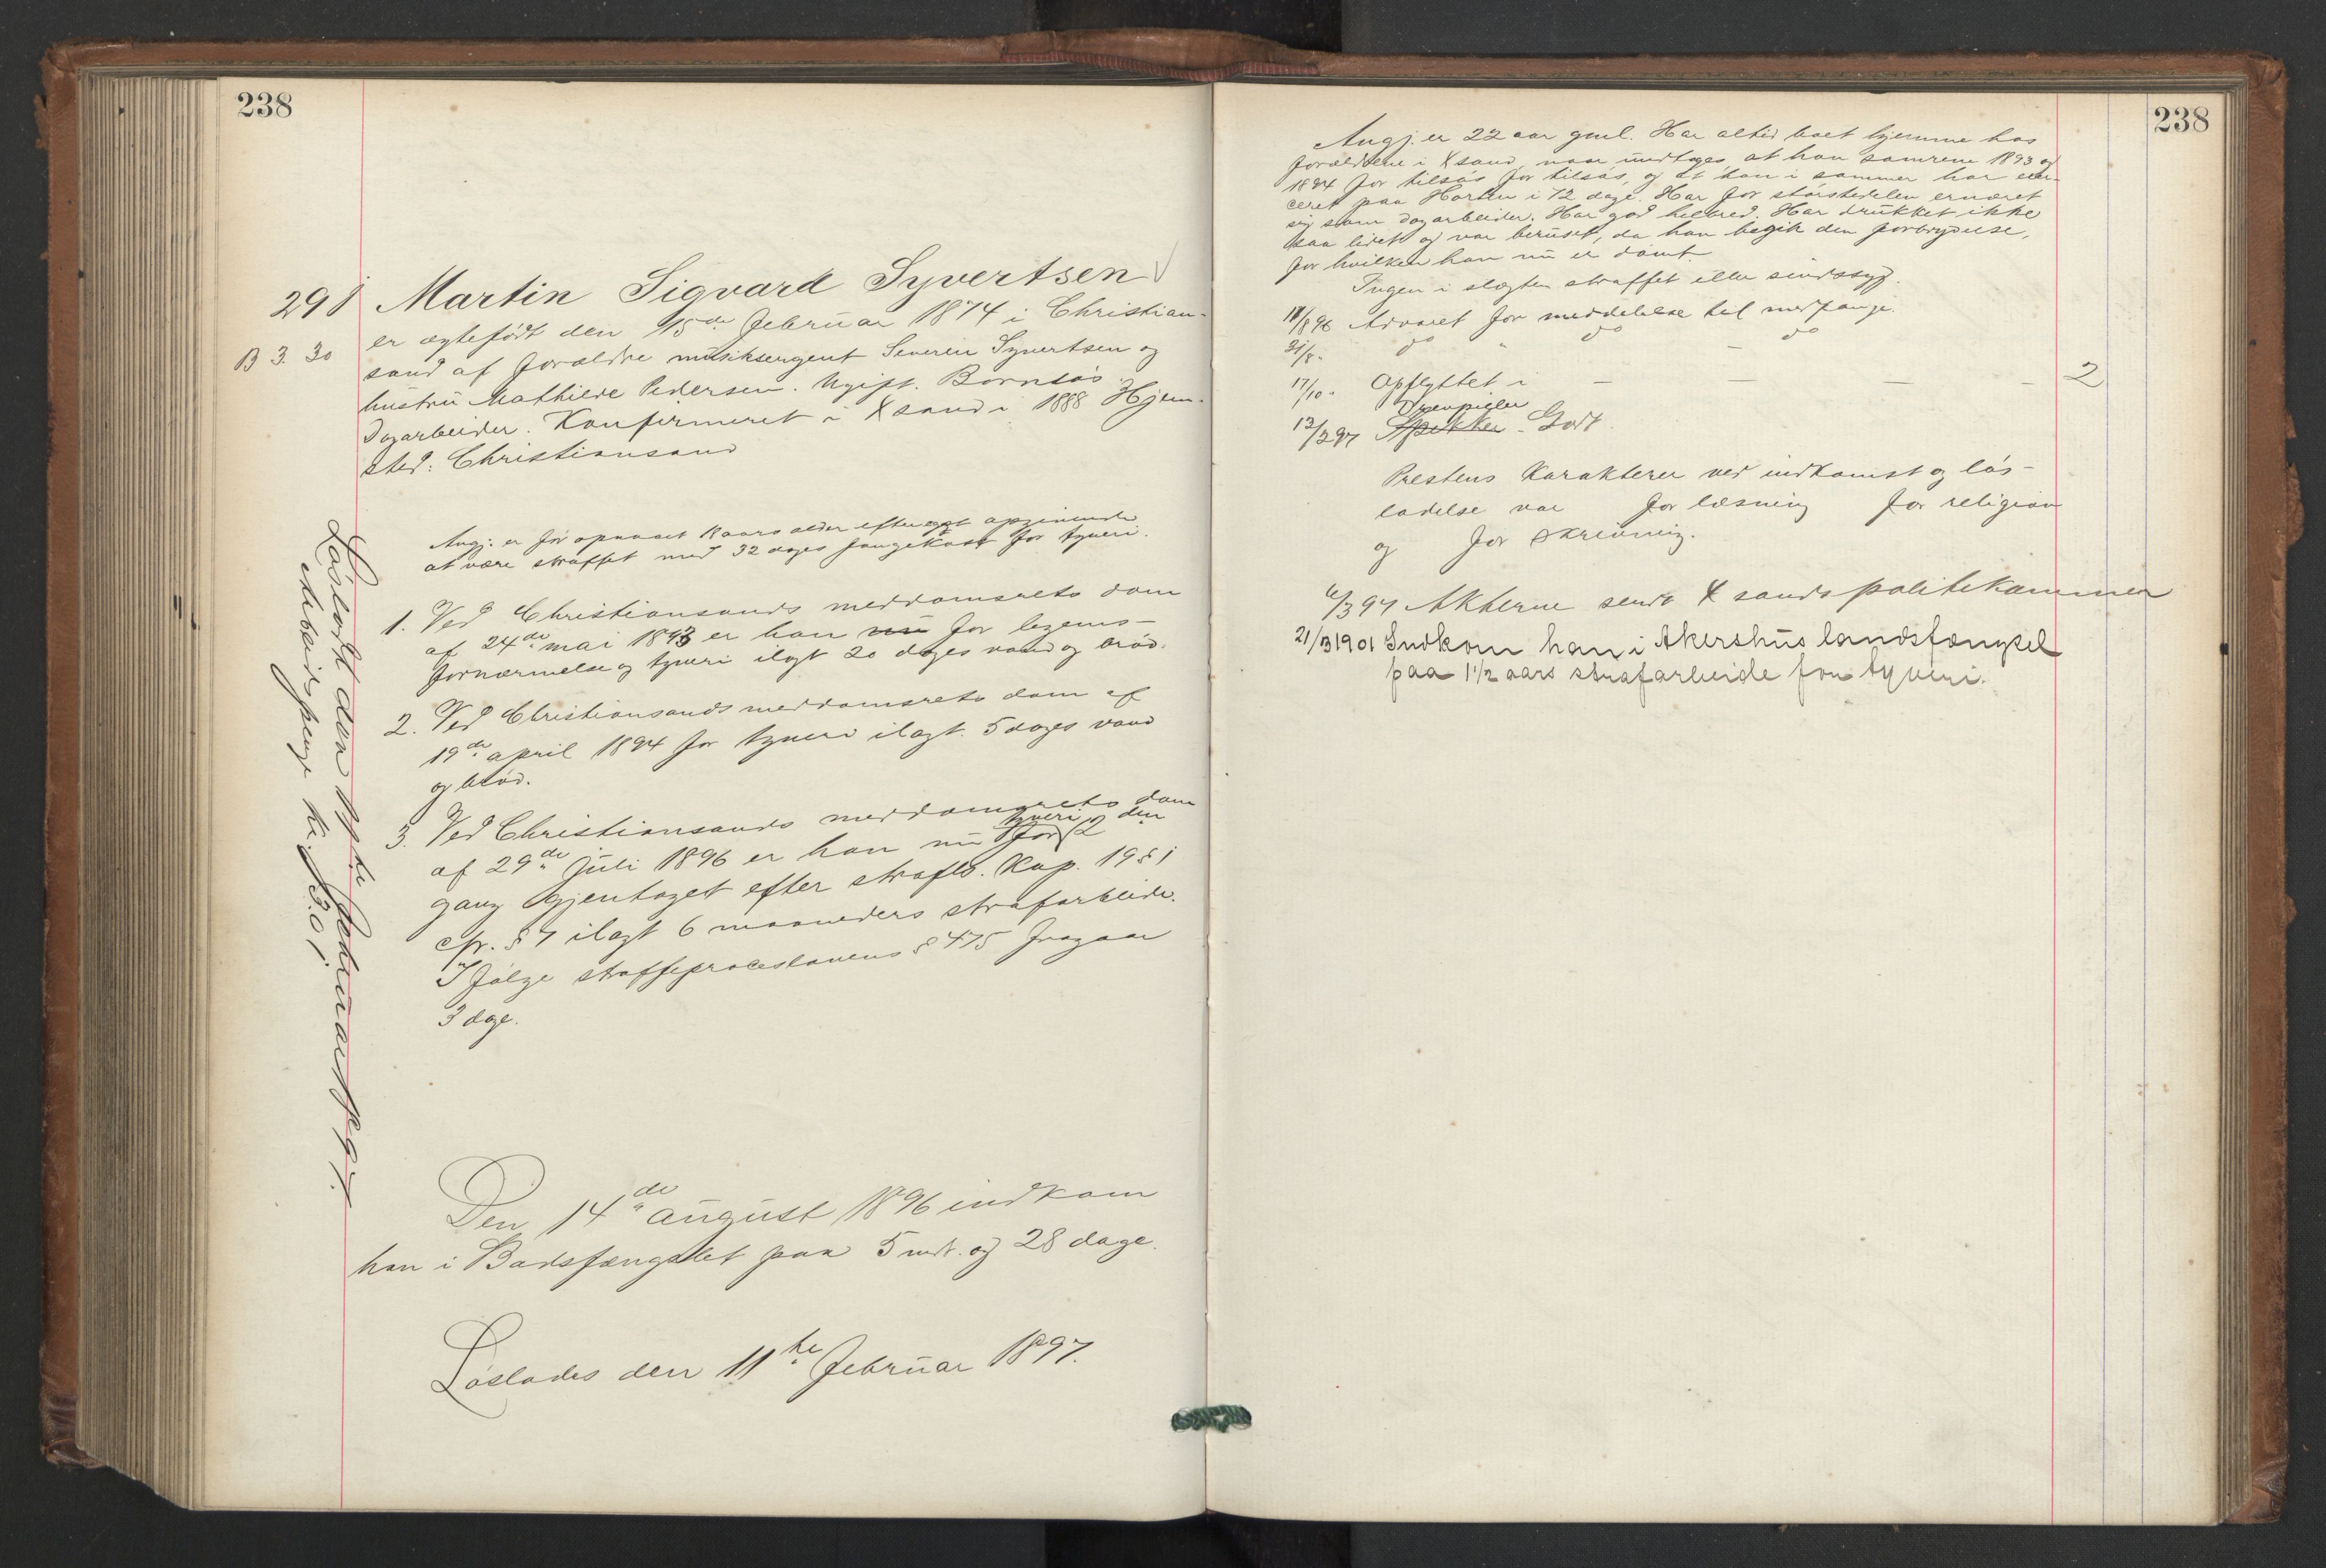 238
291 Martin Sigvard Syvertsen
er ægtefødt den 15de februar 1874 i Christian-
B 3. 30 sand af forældre musiksergent Severin Syvertsen og
hustru Mathilde Pedersen. Ugift. Barnløs.
Dagarbeider. Konfirmeret i Xsand i 1888 Hjem-
sted: Christiansand
Angj. er før opnaaet aars alder efter eget opgivende
at være straffet med 32 dages fangekost for tyveri.
1. Ved Christiansands meddomsrets dom
af 24de mai 1893 er han nu for legems-
fornærmelse og tyveri ilagt 20 dages vand og brød.
2. Ved Christiansands meddomsrets dom af
19de april 1894 for tyveri ilagt 5 dages vand
og brød.
3. Ved Christiansands meddomsrets dom
af 29de juli 1896 er han nu for tyveri 2den
gang gjentaget efter straffel. Kap. 19 § 1
cfr. § 7 ilagt 6 maaneders strafarbeide.
I følge straffeproceslovens § 475 fragaar
3 dage.
Den 14de august 1896 indkom
han i Bodsfængslet paa 5 mdr. og 28 dage.
Løslades den 11te februar 1897.
Løsladt den 11te februar 1897.
Arbeidspenge kr.
238
Angj. er 22 aar gml. Har altid boet hjemme hos
forældrene i Xsand, naar undtages at han somrene 1893 og
1894 for tilsøs for tilsøs, og at han i sommer har exer-
ceret paa Horten i 72 dage. Har for størstedelen ernæret
sig som dagarbeider. Har god helbred. Har drukket ikke
saa lidet og var beruset, da han begik den forbrydelse,
for hvilken han nu er dømt.
Ingen i slægten straffet eller sindssyg.
18/8 96 Advaret for meddelelse til medfange.
31/8 " do " do — do
17/10 " Opflyttet i — — — — 2
13/2 97 Spikker Godt.
Prestens Karakterer ved indkomst og løs-
ladelse var for læsning for religion
og for skrivning.
6/3 97 Akterne sendt Xsands politikammer
21/3 1901 Indkom han i Akershus landsfængsel
paa 1 1/2 aars strafarbeide for tyveri.